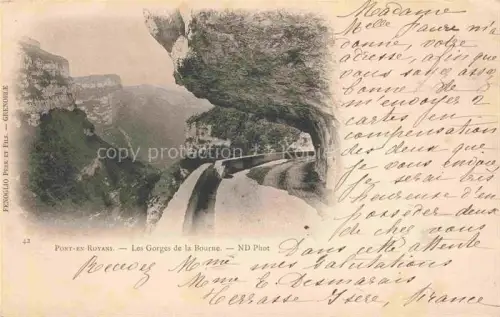 Madame
Melle Faure m'a
donné, votre
adresse, afin que
vous soyez assez
bonne de
m'envoyer 2
cartes en
compensation
des deux que
je vous envoie
je serai très
heureuse d'en
posséder deux
de chez vous
Dans cette attente
Recevez Mme mes salutations
Mme E Desmarais
Terrasse Isère, France
FENOGLIO PÈRE ET FILS. — GRENOBLE
copyright protected
42
PONT-EN ROYANS. — LES GORGES DE LA BOURNE. — ND Phot